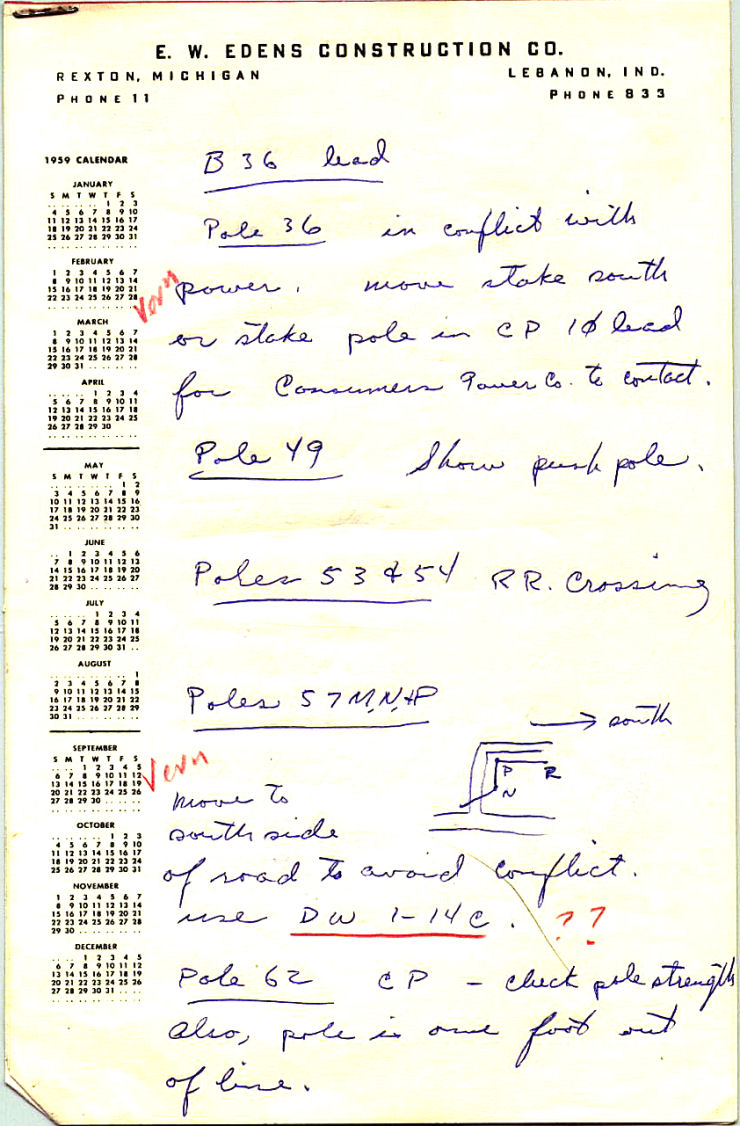 E. W. EDENS CONSTRUCTION CO.
REXTON, MICHIGAN LEBANON, IND.
PHONE 11 PHONE 833
1959 CALENDAR
JANUARY
S M T W T F S
1 2 3
4 5 6 7 8 9 10
11 12 13 14 15 16 17
18 19 20 21 22 23 24
25 26 27 28 29 30 31
FEBRUARY
1 2 3 4 5 6 7
8 9 10 11 12 13 14
15 16 17 18 19 20 21
22 23 24 25 26 27 28
MARCH
1 2 3 4 5 6 7
8 9 10 11 12 13 14
15 16 17 18 19 20 21
22 23 24 25 26 27 28
29 30 31
APRIL
1 2 3 4
5 6 7 8 9 10 11
12 13 14 15 16 17 18
19 20 21 22 23 24 25
26 27 28 29 30
MAY
S M T W T F S
1 2
3 4 5 6 7 8 9
10 11 12 13 14 15 16
17 18 19 20 21 22 23
24 25 26 27 28 29 30
31
JUNE
1 2 3 4 5 6
7 8 9 10 11 12 13
14 15 16 17 18 19 20
21 22 23 24 25 26 27
28 29 30
JULY
1 2 3 4
5 6 7 8 9 10 11
12 13 14 15 16 17 18
19 20 21 22 23 24 25
26 27 28 29 30 31
AUGUST
1
2 3 4 5 6 7 8
9 10 11 12 13 14 15
16 17 18 19 20 21 22
23 24 25 26 27 28 29
30 31
SEPTEMBER
S M T W T F S
1 2 3 4 5
6 7 8 9 10 11 12
13 14 15 16 17 18 19
20 21 22 23 24 25 26
27 28 29 30
OCTOBER
1 2 3
4 5 6 7 8 9 10
11 12 13 14 15 16 17
18 19 20 21 22 23 24
25 26 27 28 29 30 31
NOVEMBER
1 2 3 4 5 6 7
8 9 10 11 12 13 14
15 16 17 18 19 20 21
22 23 24 25 26 27 28
29 30
DECEMBER
1 2 3 4 5
6 7 8 9 10 11 12
13 14 15 16 17 18 19
20 21 22 23 24 25 26
27 28 29 30 31
B 36 lead
Pole 36 in conflict with
Vern
power. move stake south
or stake pole in CP 1Ø lead
for Consumers Power Co. to contact.
Pole 49 Show push pole.
Poles 53 & 54 RR. Crossing
Poles 57 M, N, & P
→ south
P R
N
Vern
move to
south side
of road to avoid conflict.
use DW 1-14C. ??
Pole 62 CP - check pole strength
also, pole is one foot out
of line.